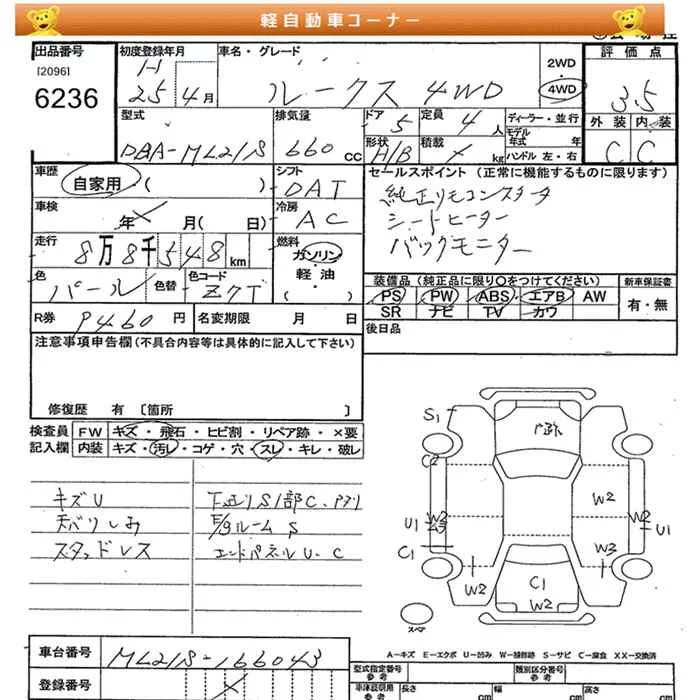 軽自動車コーナー
出品番号 初度登録年月 車名・グレード 2WD ・ 4WD 評価点
[2096] H 25年 4月 ルークス 4WD 3.5
6236
型式 排気量 ドア 5 定員 4人 ディーラー・並行 外装 内装
DBA-ML21S 660 CC 形状 H/B 積載 kg モデル年式 年 C C
ハンドル 左・右
車歴 自家用・( ) シフト DAT セールスポイント(正常に機能するものに限ります)
車検 年 月( 日) 冷房 AC 純正リモコンスタータ
シートヒーター
走行 8万8千548km 燃料 ガソリン・軽油 ( ) バックモニター
色 パール 色替 色コード Z7T 装備品(純正品に限り○をつけてください) 新車保証書
PS PW ABS・エアB AW 有・無
SR ナビ TV カワ
R券 9460円 名変期限 月 日 後日品
注意事項申告欄(不具合内容等は具体的に記入して下さい)
修復歴 有〔箇所 〕
検査員 FW キズ・飛石・ヒビ割・リペア跡・×要
記入欄 内装 キズ・汚レ・コゲ・穴・スレ・キレ・破レ
キズU
天バリしみ
スタッドレス
下廻りS1部C
E/gルームS
エンドパネルU・C
S1
C2
W2
W2
U1
U1
C1
W3
W2
C1
W2
スペア
A=キズ E=エクボ U=凹み W=補修跡 S=サビ C=腐食 XX=交換済
車台番号 ML21S-166043
登録番号
型式指定番号 参考 類別区分番号 参考
長さ cm 幅 cm 高さ cm